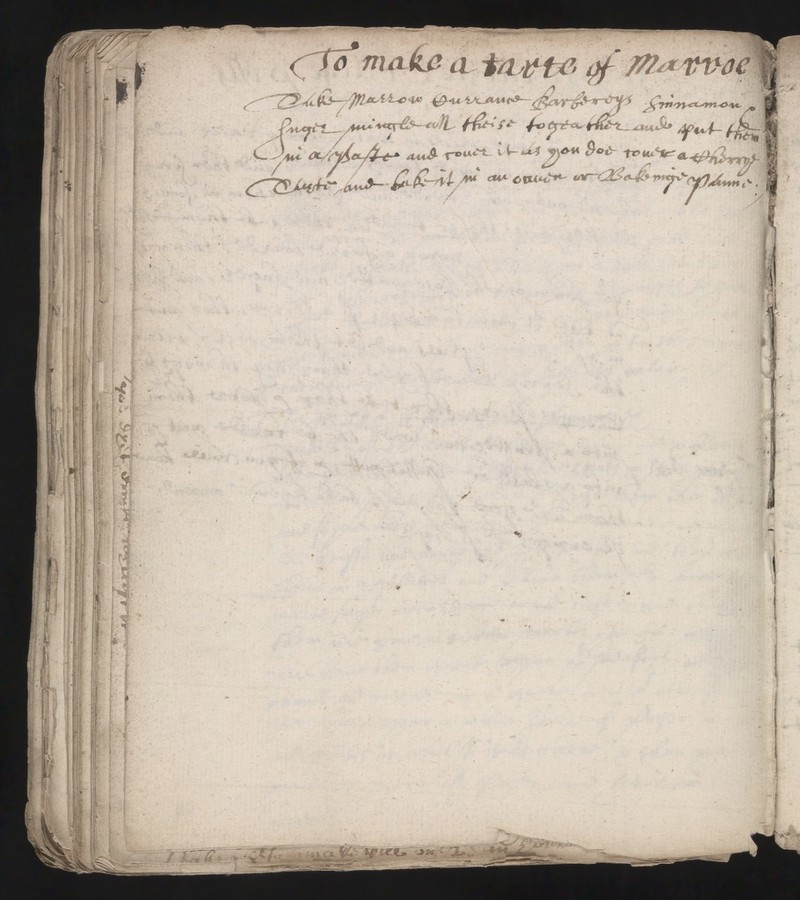 To make a tarte of Marroe
Take Marrow Currance Barbereys Sinnamon
Suger mingle all theise togeather and put them
in a paste and cover it as you doe cover a Cherrye
Tarte and bake it in an ouven or Bakeinge panne